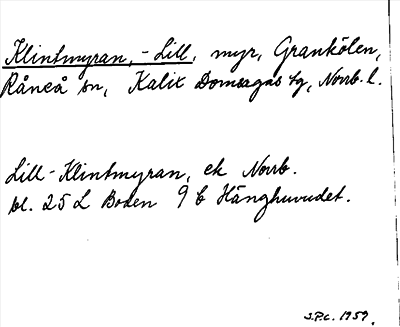 Klintmyran, -Lill, myr, Grankölen,
Råneå sn, Kalix Domsagas tg, Norrb. l.
Lill-Klintmyran, ek Norrb.
bl. 25 L Boden 9 b Hänghuvudet.
S.P.C. 1959.